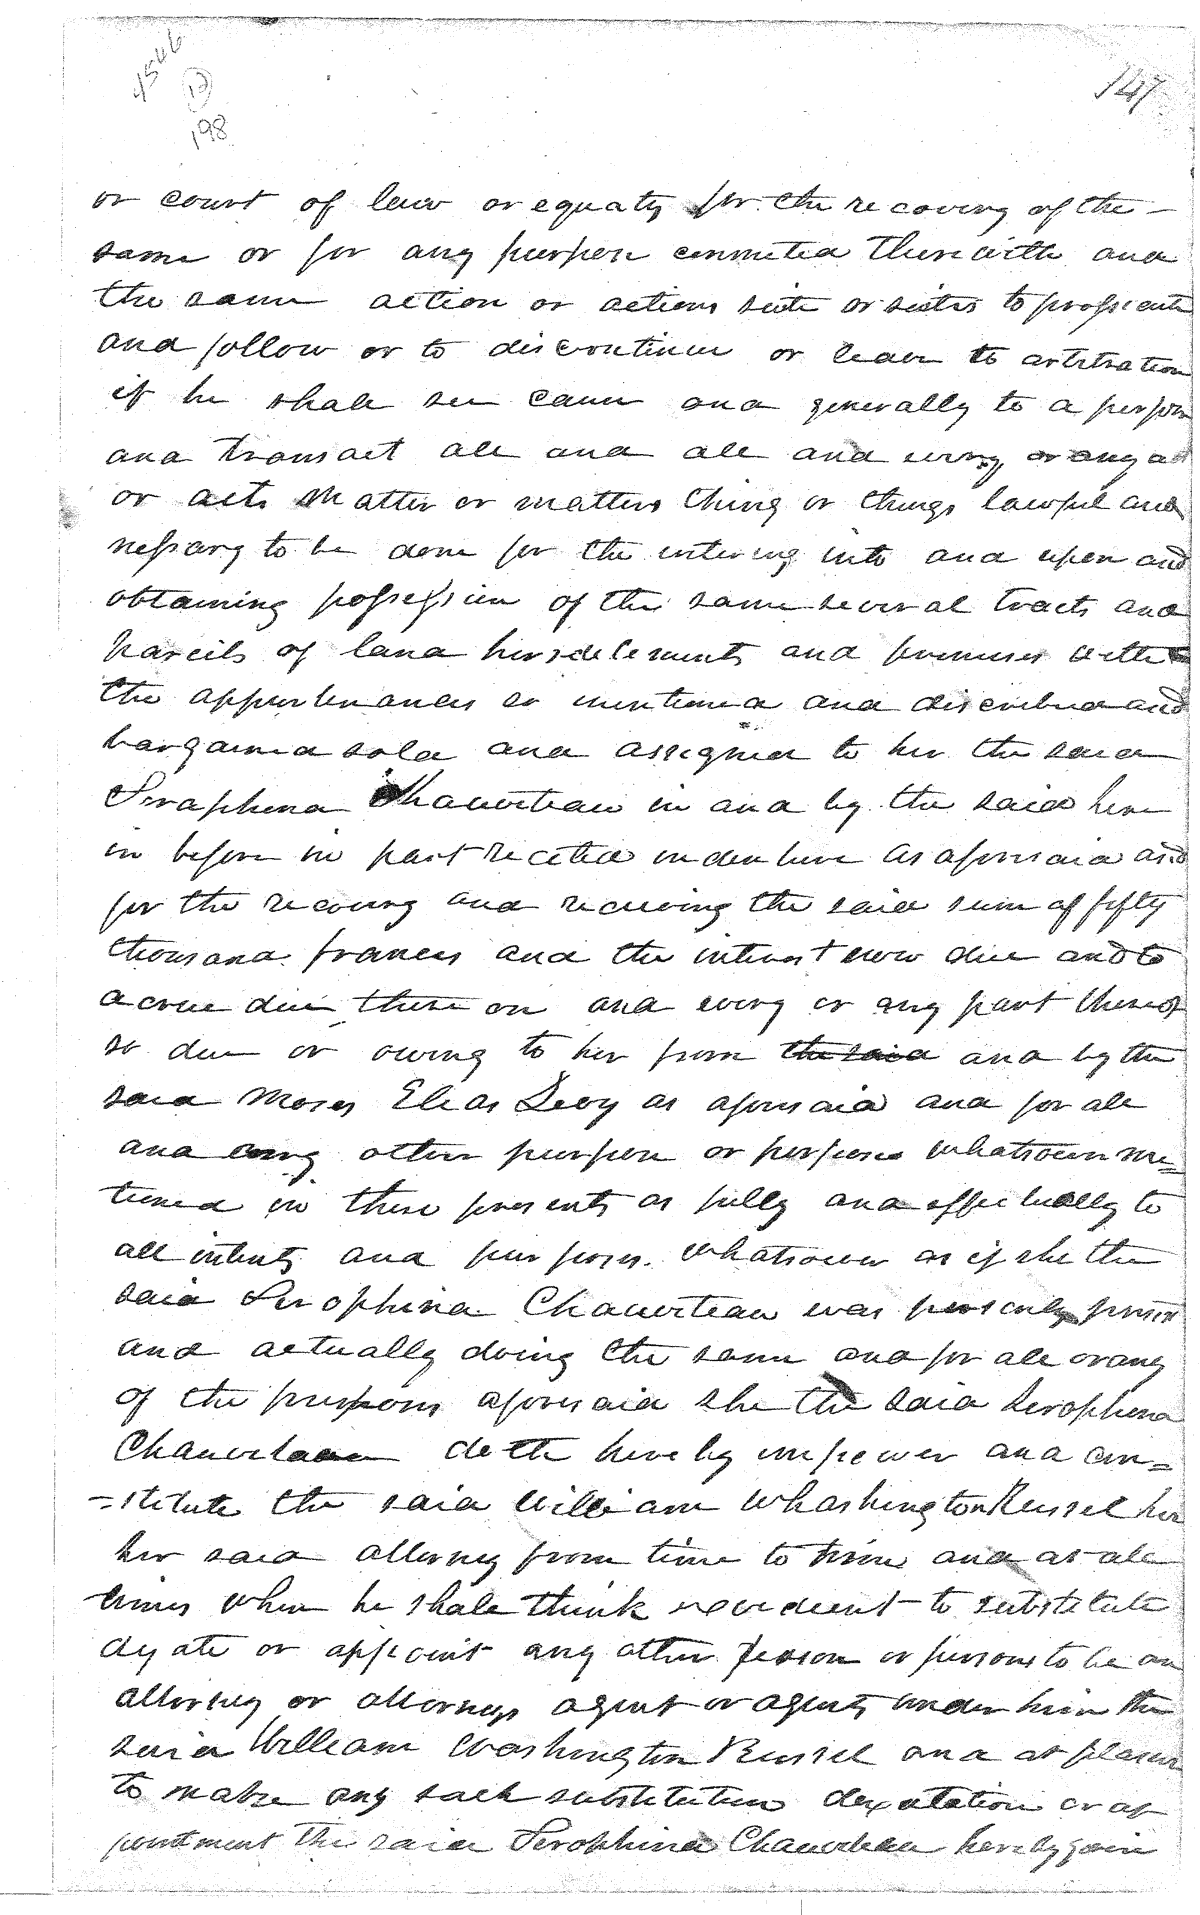 1546
13
198
147
or court of law or equaty for the recoving of the –
same or for any purpose connected therewith and
the same action or actions suite or suites to prossicute
and follow or to discontinue or leave to arbitration
if he shall see cause and generally to a perform
and transact all and all and every or any act
or acts Matter or matters thing or things lawful and
nessary to be done for the entering into and upon and
obtaining possession of the same several tracts and
parcels of land hersdelements and premises with
the appurtenances so mentioned and discribed and
bargained sold and assigned to her the said
Seraphena Chauviteau in and by the said here
in before in part recited indenture as aforesaid and
for the recoving and receiving the said sum of fifty
thousand francs and the interest now due and to
acrue due there on and every or any part thereof
so due or owing to her from the said and by the
said Moses Elias Levy as aforesaid and for all
and every other purpose or purposes whatsoever me=
tioned in these presents as fully and effectually to
all intents and purposes. whatsoever as if she the
said Serophina Chauviteau was personly present
and actually doing the same and for all or any
of the purposes aforesaid she the said Serophena
Chauviteau doth hereby impower and con=
=stitute the said William Whashington Russel her
her said attorney from time to time and at all
times when he shall think expedient to substitute
dy ate or appoint any other person or persons to be an
attorney or attorneys agent or agents under him the
said William Washington Russel and at pleasure
to make any such substitution deputation or ap
pointment the said Serophina Chauviteau hereby given